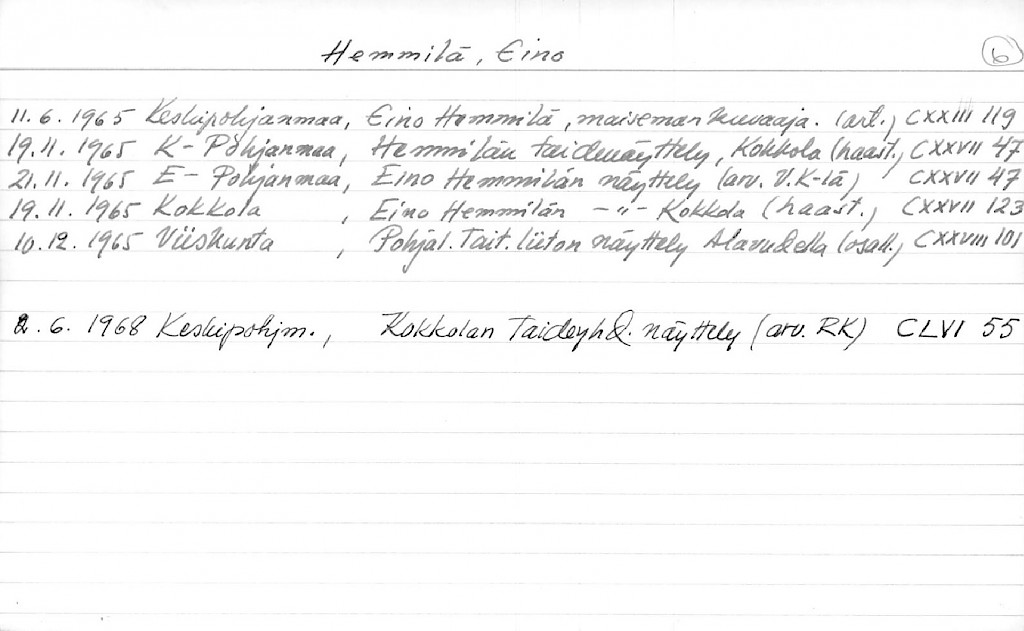 Hemmilä, Eino 6
11.6.1965 Keskipohjanmaa, Eino Hemmilä, maiseman kuvaaja. (art.) CXXIII 119
19.11.1965 K-Pohjanmaa, Hemmilän taidenäyttely, Kokkola (haast.) CXXVII 47
21.11.1965 E-Pohjanmaa, Eino Hemmilän näyttely (arv. V.K-lä) CXXVII 47
19.11.1965 Kokkola, Eino Hemmilän -"- Kokkola (haast.) CXXVII 123
10.12.1965 Viiskunta, Pohjal. Tait. liiton näyttely Alavudella (osall.) CXXVIII 101
2.6.1968 Keskipohjm., Kokkolan Taideyhd. näyttely (arv. RK) CLVI 55